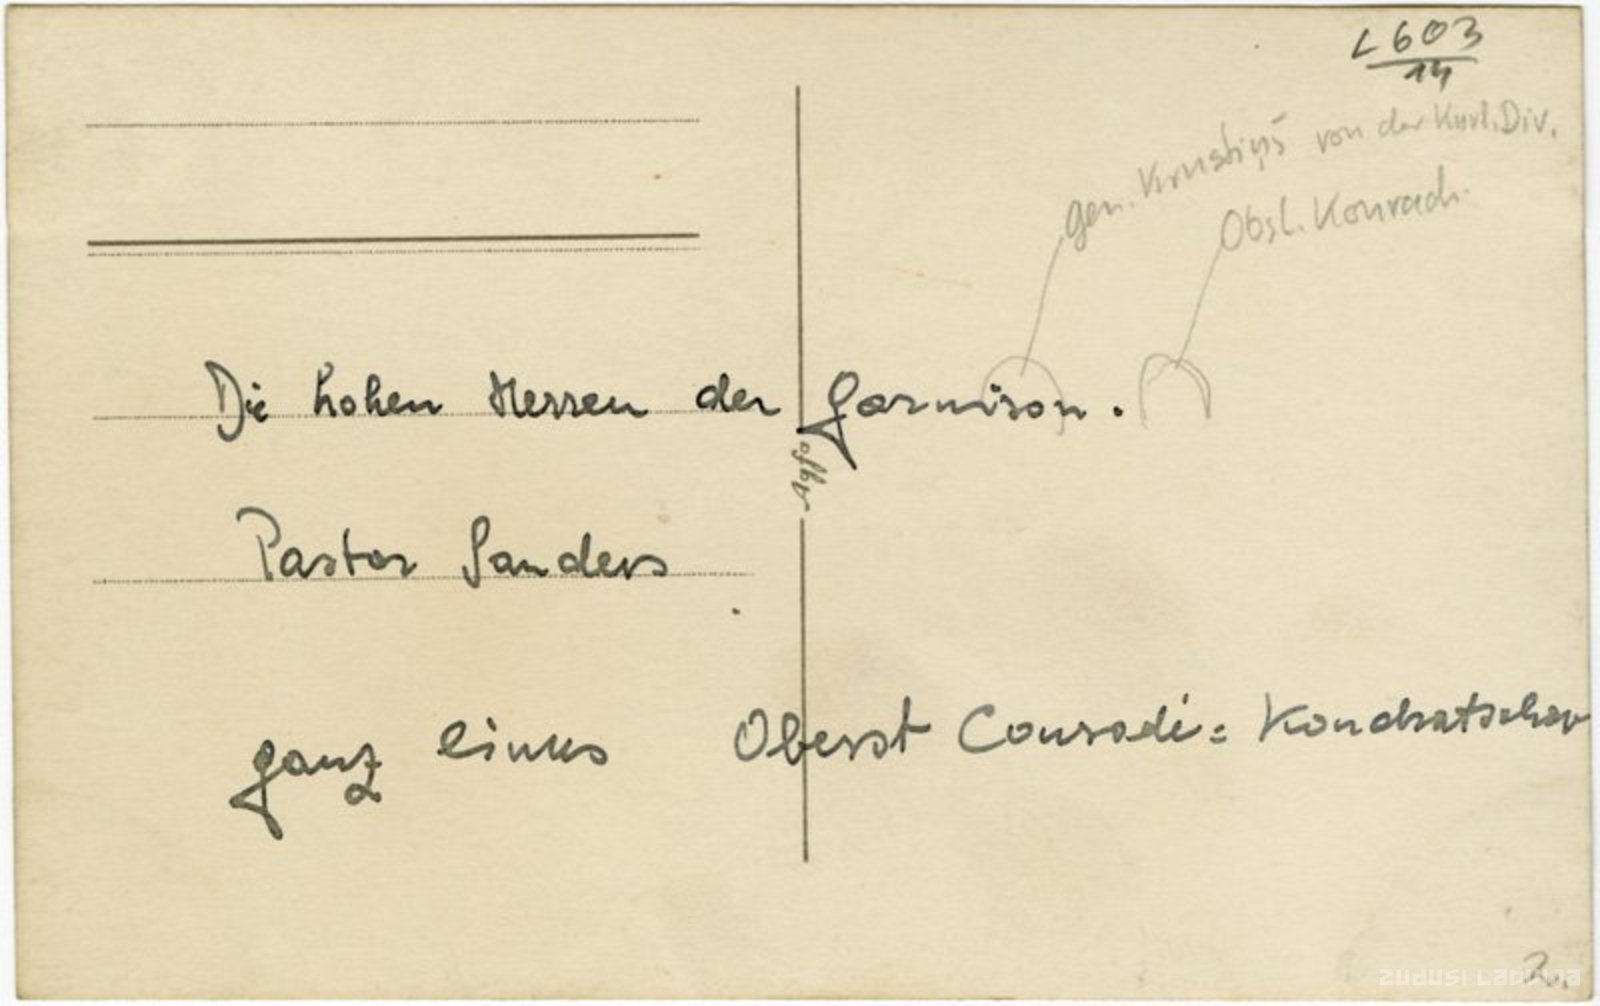 L 603
14
gen. Krustiņš von der Kurl. Div.
Obsl. Konrad.
Die hohen Herren der Garnison.
Pastor Sanders
ganz links Oberst Conradi = Kondratschow
2.
zudusi Latvija